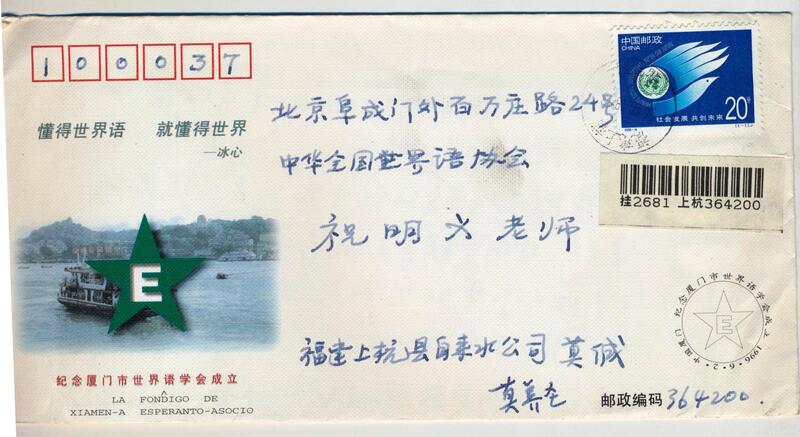 100037
中国邮政
CHINA
20分
社会发展 共创未来
北京阜成门外百万庄路24号
懂得世界语 就懂得世界
—冰心
中华全国世界语协会
挂2681 上杭364200
祝明义老师
E
中国厦门 纪念厦门市世界语学会成立 1996.6.2.
E
福建上杭县自来水公司 莫
纪念厦门市世界语学会成立
LA FONDIGO DE
XIAMEN-A ESPERANTO-ASOCIO
邮政编码 364200